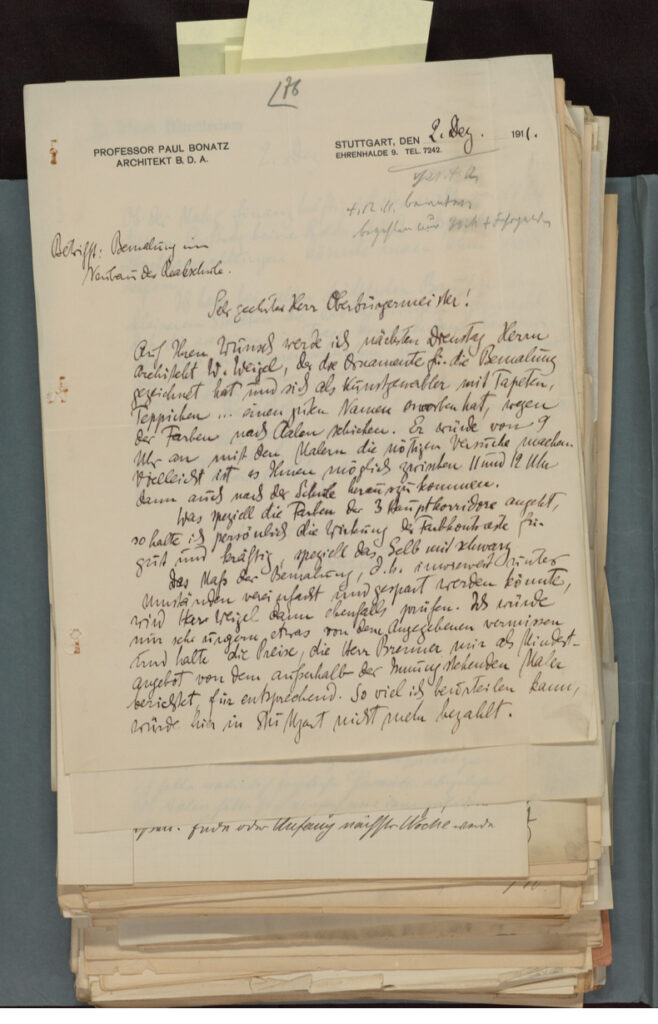 176
PROFESSOR PAUL BONATZ
ARCHITEKT B. D. A.
STUTTGART, DEN 2. Dez. 1911.
EHRENHALDE 9. TEL. 7242.
Betrifft: Bemalung im
Neubau der Realschule.
Sehr geehrter Herr Oberbürgermeister!
Auf Ihren Wunsch werde ich nächsten Dienstag Herrn
Architekt W. Weigel, der die Ornamente für die Bemalung
gezeichnet hat und sich als Kunstgewerbler mit Tapeten,
Teppichen ... einen guten Namen erworben hat, wegen
der Farben nach Aalen schicken. Er würde von 9
Uhr an mit den Malern die nötigen Versuche machen.
Vielleicht ist es Ihnen möglich zwischen 11 und 12 Uhr
dann auch nach der Schule herauszukommen.
Was speziell die Farben der 3 Hauptkorridore angeht,
so halte ich persönlich die Wirkung der Farbkontraste für
gut und kräftig, speziell das Gelb mit schwarz
Das Maß der Bemalung, d.h. inwieweit unter
Umständen vereinfacht und gespart werden könnte,
wird Herr Weigel dann ebenfalls prüfen. Ich würde
nur sehr ungern etwas von dem Angegebenen vermissen
und halte die Preise, die Herr Brenner mir als Mindest-
angebot von dem außerhalb der Innung stehenden Maler
berichtet, für entsprechend. So viel ich beurteilen kann,
würde hier in Stuttgart nicht mehr bezahlt.
Ende oder Anfang nächster Woche werde